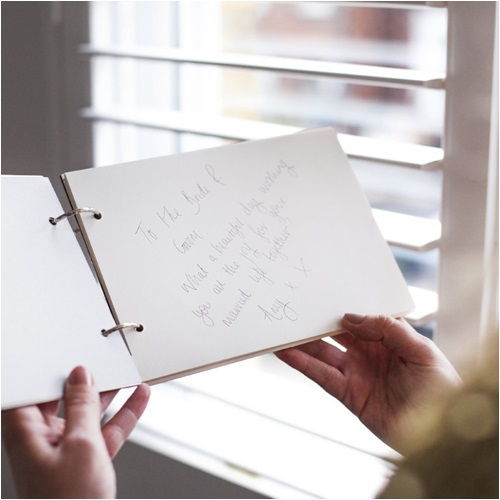 To the Bride &
Groom
What a beautiful day, wishing
you all the joy for your
married life together
Amy x x